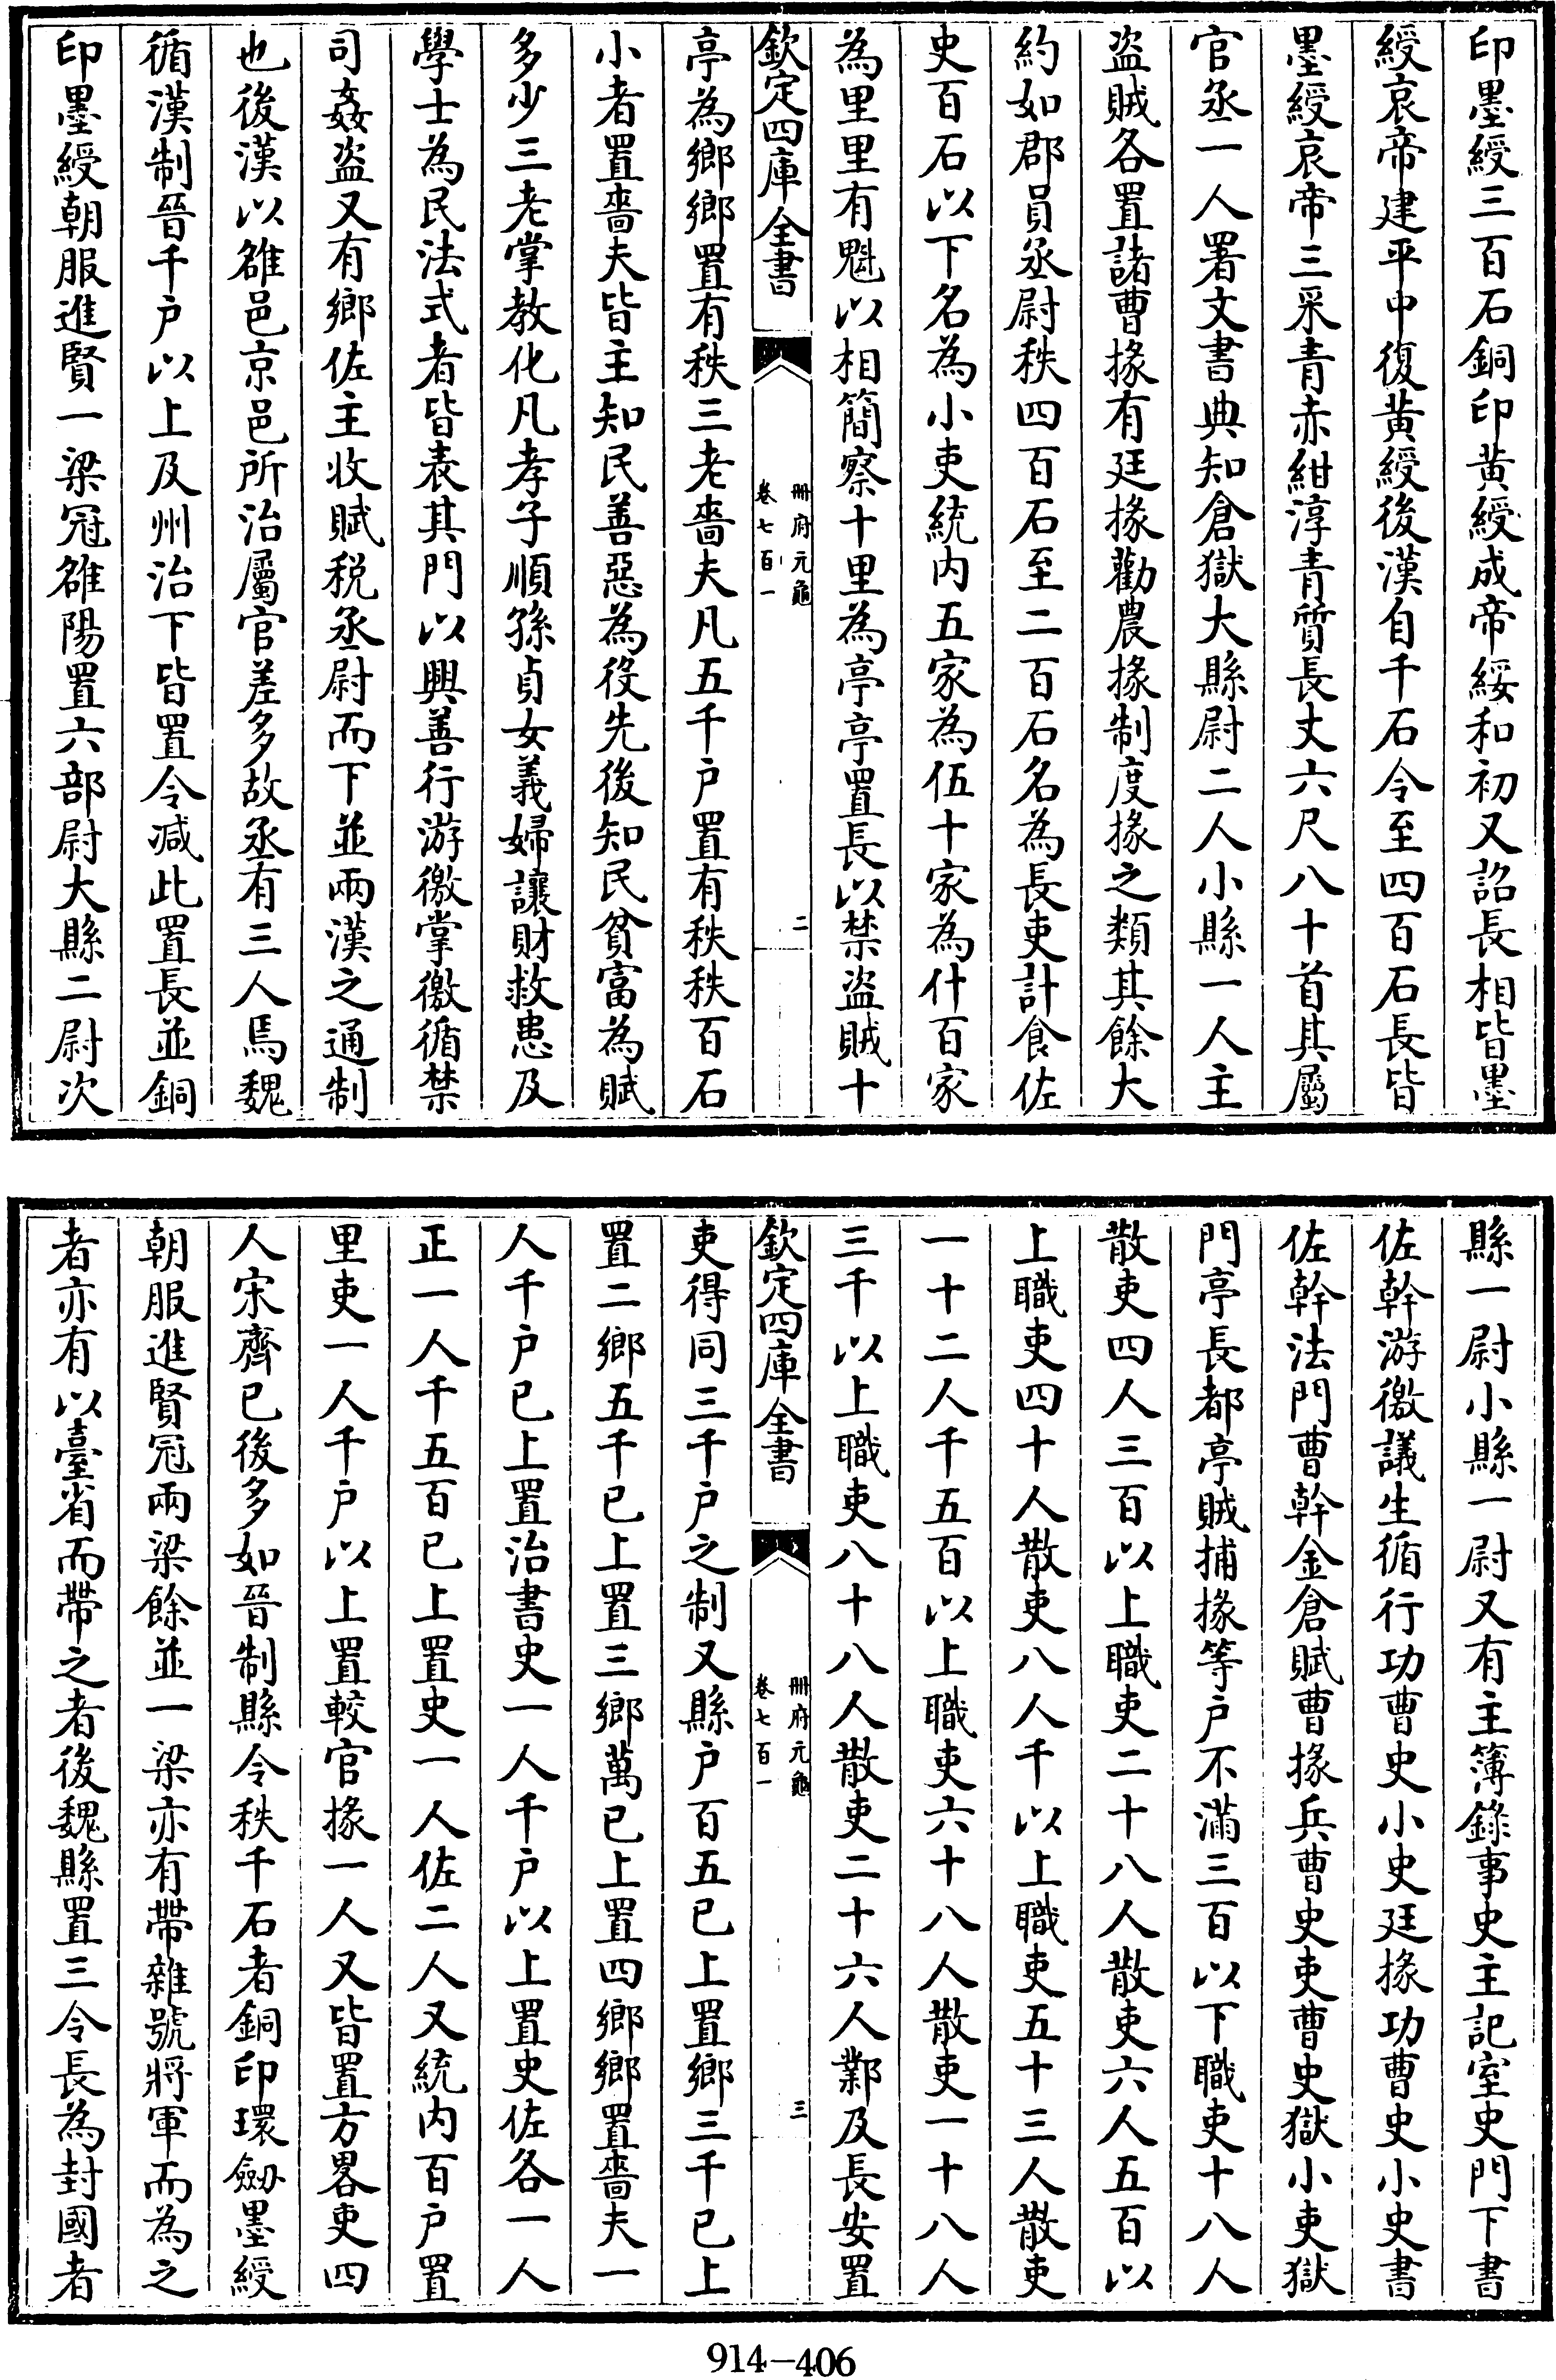 印墨綬三百石銅印黄綬成帝綏和初又詔長相皆墨
綬哀帝建平中復黄綬後漢自千石令至四百石長皆
墨綬哀帝三采青赤紺淳青質長丈六尺八十首其屬
官丞一人署文書典知倉獄大縣尉二人小縣一人主
盜賊各置諸曹掾有廷掾勸農掾制度掾之類其餘大
約如郡員丞尉秩四百石至二百石名為長吏計食佐
史百石以下名為小吏統内五家為伍十家為什百家
為里里有魁以相簡察十里為亭亭置長以禁盜賊十
欽定四庫全書
册府元龜
卷七百一
二
亭為鄉鄉置有秩三老嗇夫凡五千户置有秩秩百石
小者置嗇夫皆主知民善惡為役先後知民貧富為賦
多少三老掌教化凡孝子順孫貞女義婦讓財救患及
學士為民法式者皆表其門以興善行游徼掌徼循禁
司姦盜又有鄉佐主收賦税丞尉而下並兩漢之通制
也後漢以雒邑京邑所治屬官差多故丞有三人焉魏
循漢制晉千户以上及州治下皆置令减此置長並銅
印墨綬朝服進賢一梁冠雒陽置六部尉大縣二尉次
縣一尉小縣一尉又有主簿錄事史主記室史門下書
佐幹游徼議生循行功曹史小史廷掾功曹史小史書
佐幹法門曹幹金倉賦曹掾兵曹史吏曹史獄小吏獄
門亭長都亭賊捕掾等户不滿三百以下職吏十八人
散吏四人三百以上職吏二十八人散吏六人五百以
上職吏四十人散吏八人千以上職吏五十三人散吏
一十二人千五百以上職吏六十八人散吏一十八人
三千以上職吏八十八人散吏二十六人鄴及長安置
欽定四庫全書
册府元龜
卷七百一
三
吏得同三千户之制又縣户百五已上置鄉三千已上
置二鄉五千已上置三鄉萬已上置四鄉鄉置嗇夫一
人千户已上置治書史一人千户以上置史佐各一人
正一人千五百已上置史一人佐二人又統内百户置
里吏一人千户以上置較官掾一人又皆置方畧吏四
人宋齊已後多如晉制縣令秩千石者銅印環劒墨綬
朝服進賢冠兩梁餘並一梁亦有帶雜號將軍而為之
者亦有以臺省而帶之者後魏縣置三令長為封國者
914-406